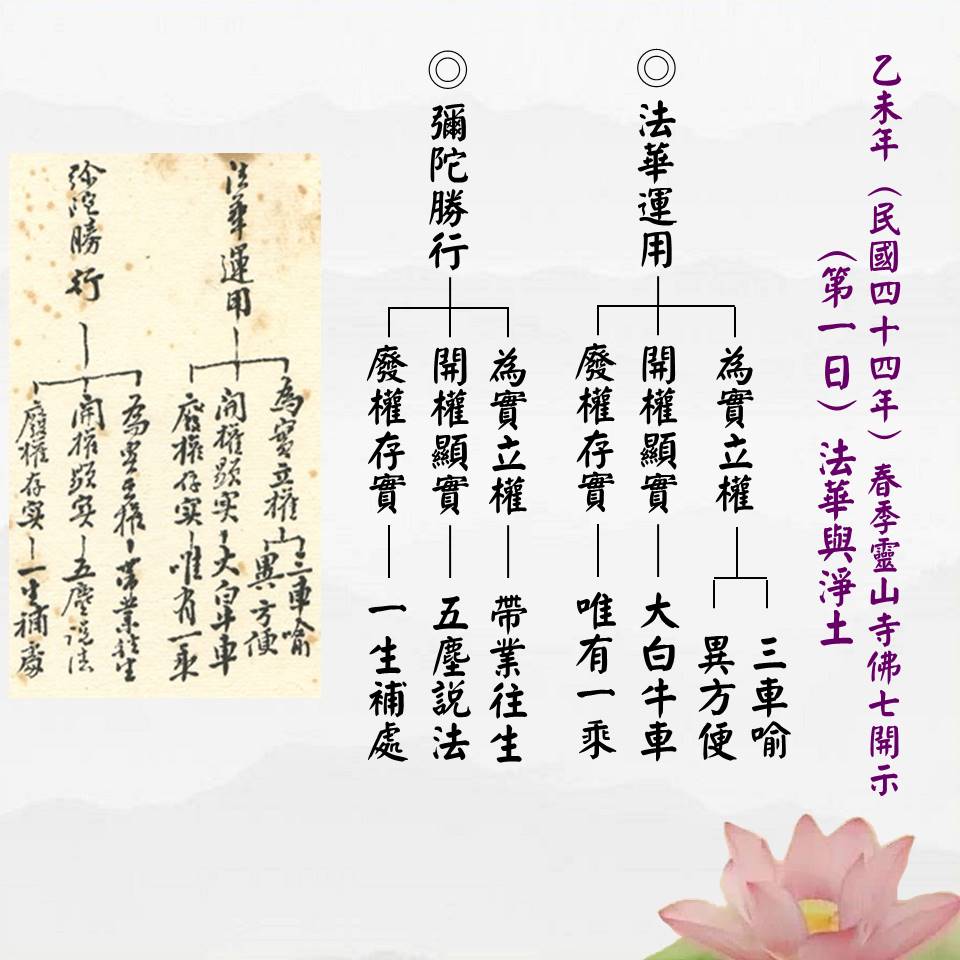 乙未年（民國四十四年）春季靈山寺佛七開示
（第一日）法華與淨土
◎法華運用
為實立權
三車喻
異方便
開權顯實
大白牛車
廢權存實
唯有一乘
◎彌陀勝行
為實立權
帶業往生
開權顯實
五塵說法
廢權存實
一生補處
法華運用
為實立權
三車喻
異方便
開權顯实
大白牛車
廢權存实
唯有一乘
弥陀勝行
為实立權
帶業往生
開權顯实
五塵說法
廢權存实
一生補處